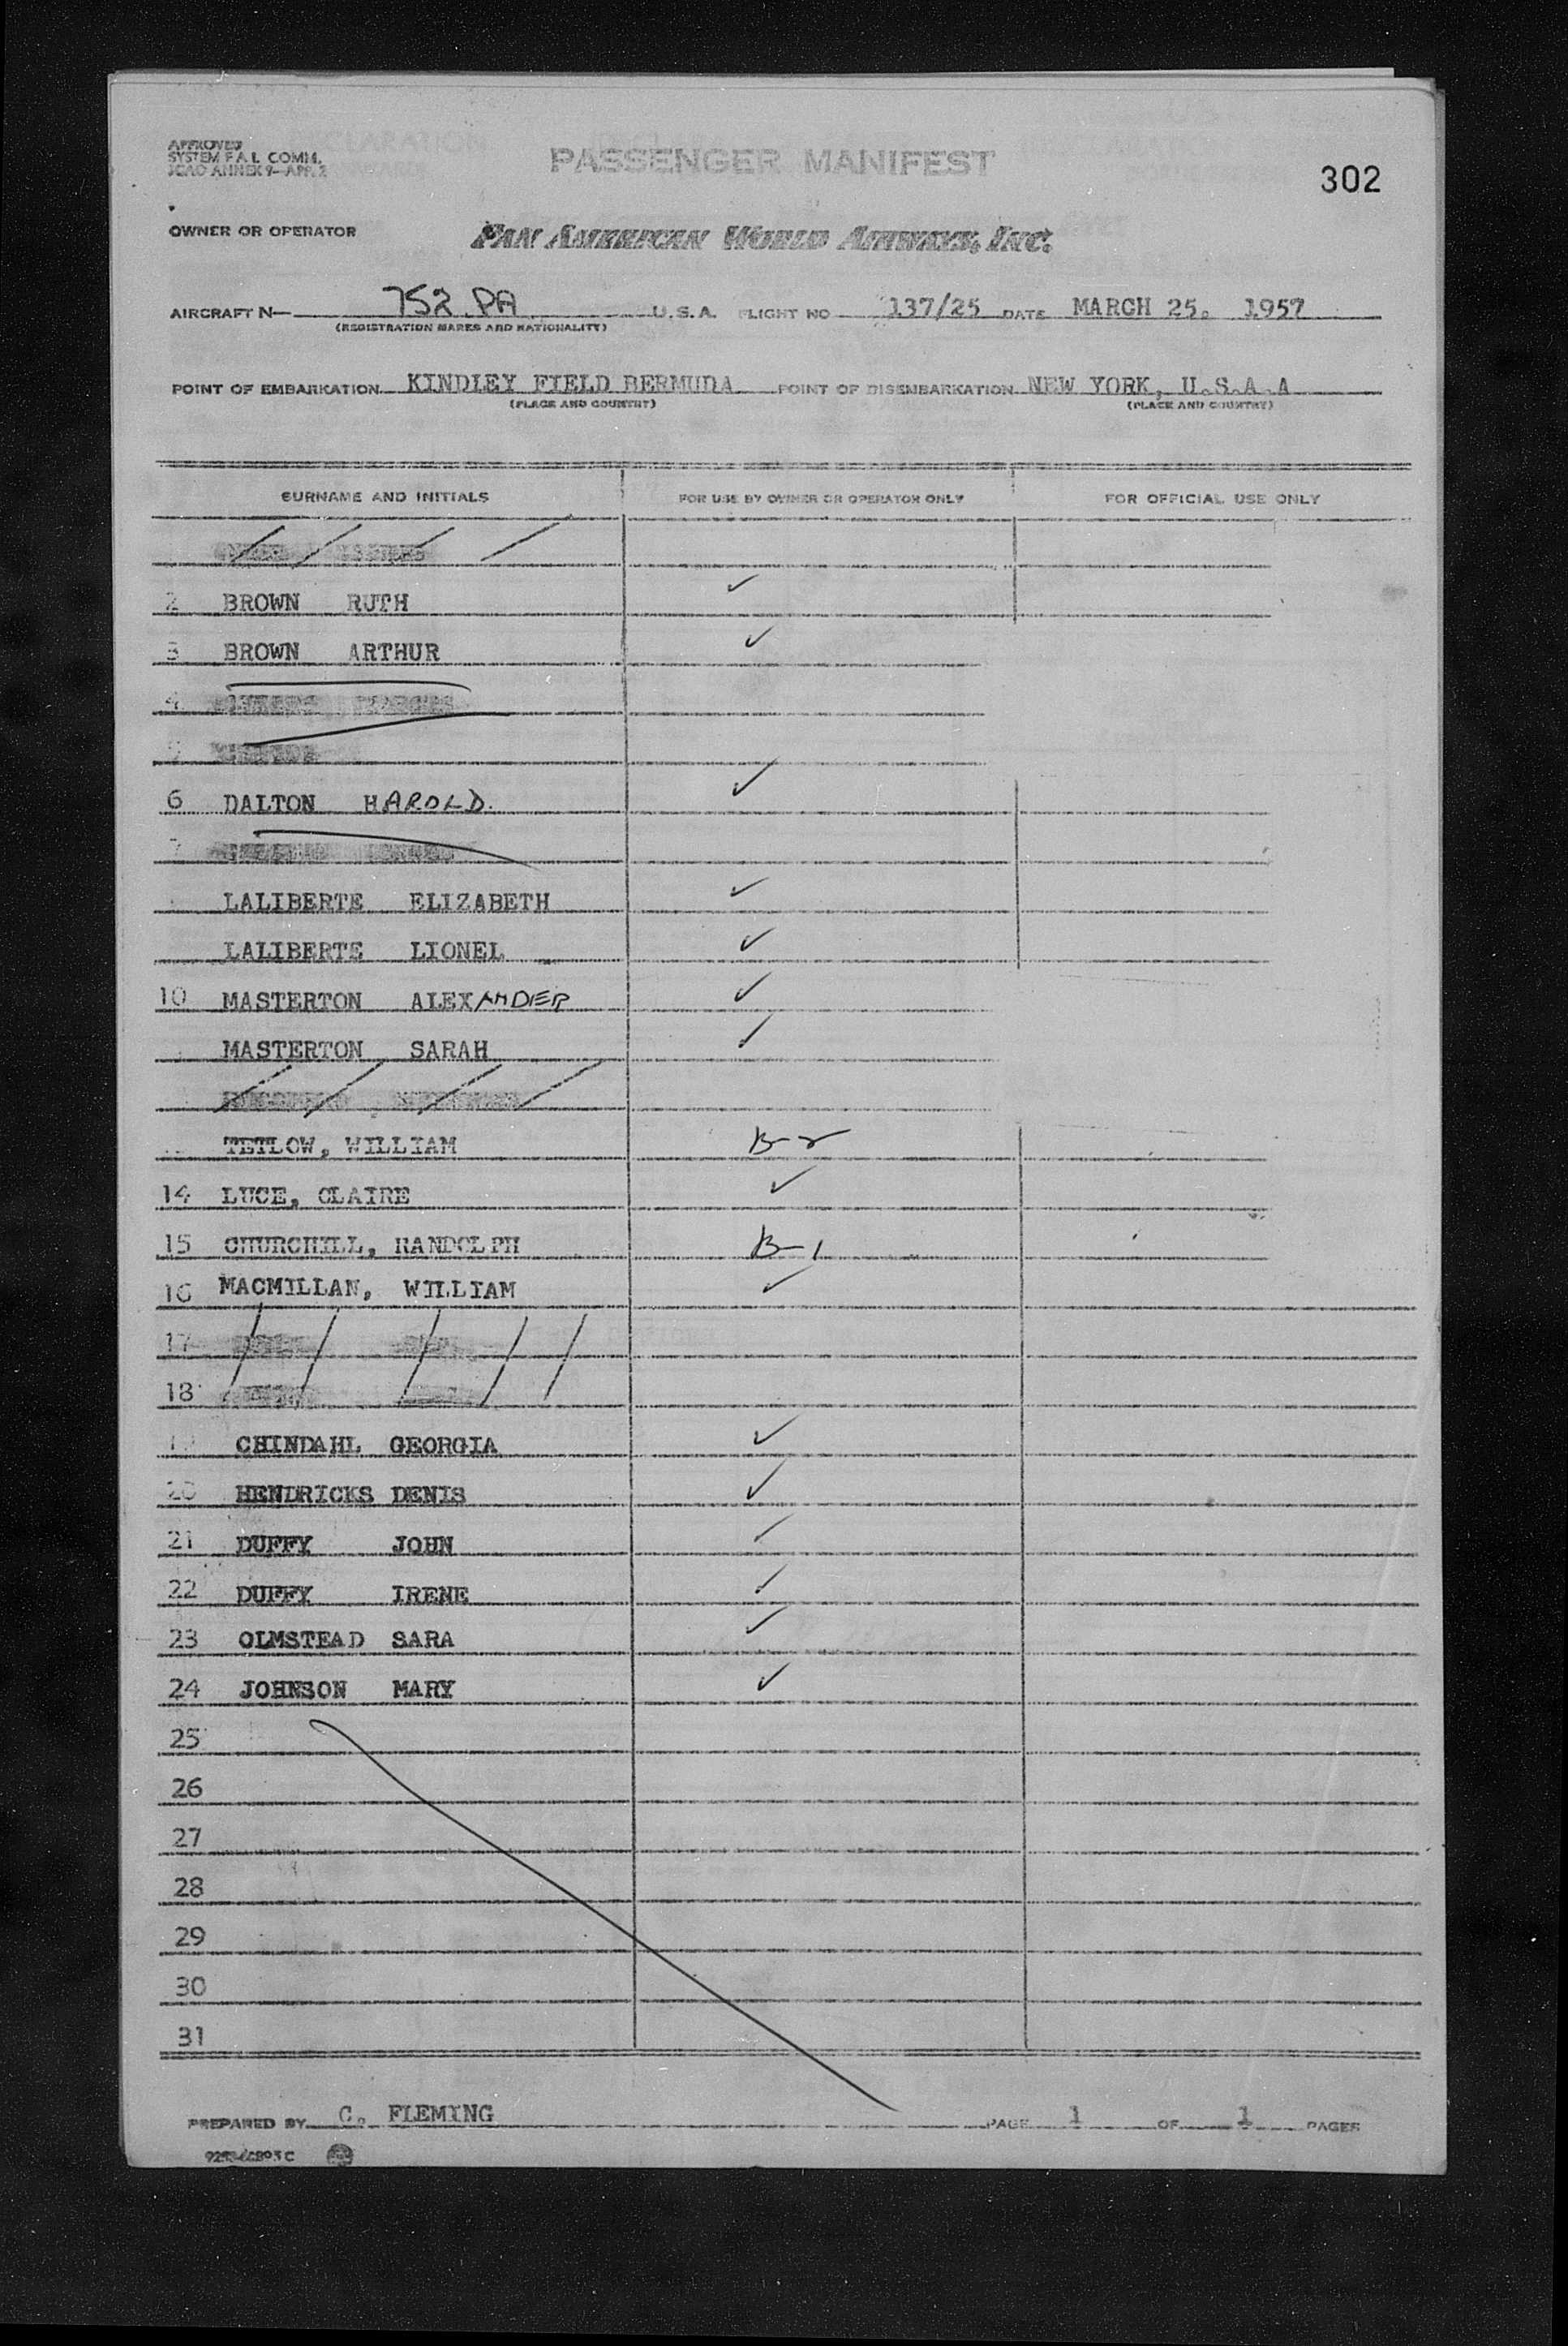 APPROVED
SYSTEM F A L COMM.
ICAO ANNEX 9—APP. 2
PASSENGER MANIFEST
302
OWNER OR OPERATOR PAN AMERICAN WORLD AIRWAYS, INC.
AIRCRAFT N— 752 PA U.S.A. FLIGHT NO 137/25 DATE MARCH 25. 1957
(REGISTRATION MARKS AND NATIONALITY)
POINT OF EMBARKATION KINDLEY FIELD BERMUDA POINT OF DISEMBARKATION NEW YORK, U.S.A.A
(PLACE AND COUNTRY) (PLACE AND COUNTRY)
SURNAME AND INITIALS FOR USE BY OWNER OR OPERATOR ONLY FOR OFFICIAL USE ONLY
2 BROWN RUTH ✓
3 BROWN ARTHUR ✓
4
5
6 DALTON HAROLD. ✓
7
LALIBERTE ELIZABETH ✓
LALIBERTE LIONEL ✓
10 MASTERTON ALEXANDER ✓
MASTERTON SARAH ✓
TETLOW, WILLIAM B-2
14 LUCE, CLAIRE ✓
15 CHURCHILL, RANDOLPH B-1
16 MACMILLAN, WILLIAM ✓
17
18
19 CHINDAHL GEORGIA ✓
20 HENDRICKS DENIS ✓
21 DUFFY JOHN ✓
22 DUFFY IRENE ✓
23 OLMSTEAD SARA ✓
24 JOHNSON MARY ✓
25
26
27
28
29
30
31
PREPARED BY C. FLEMING PAGE 1 OF 1 PAGES